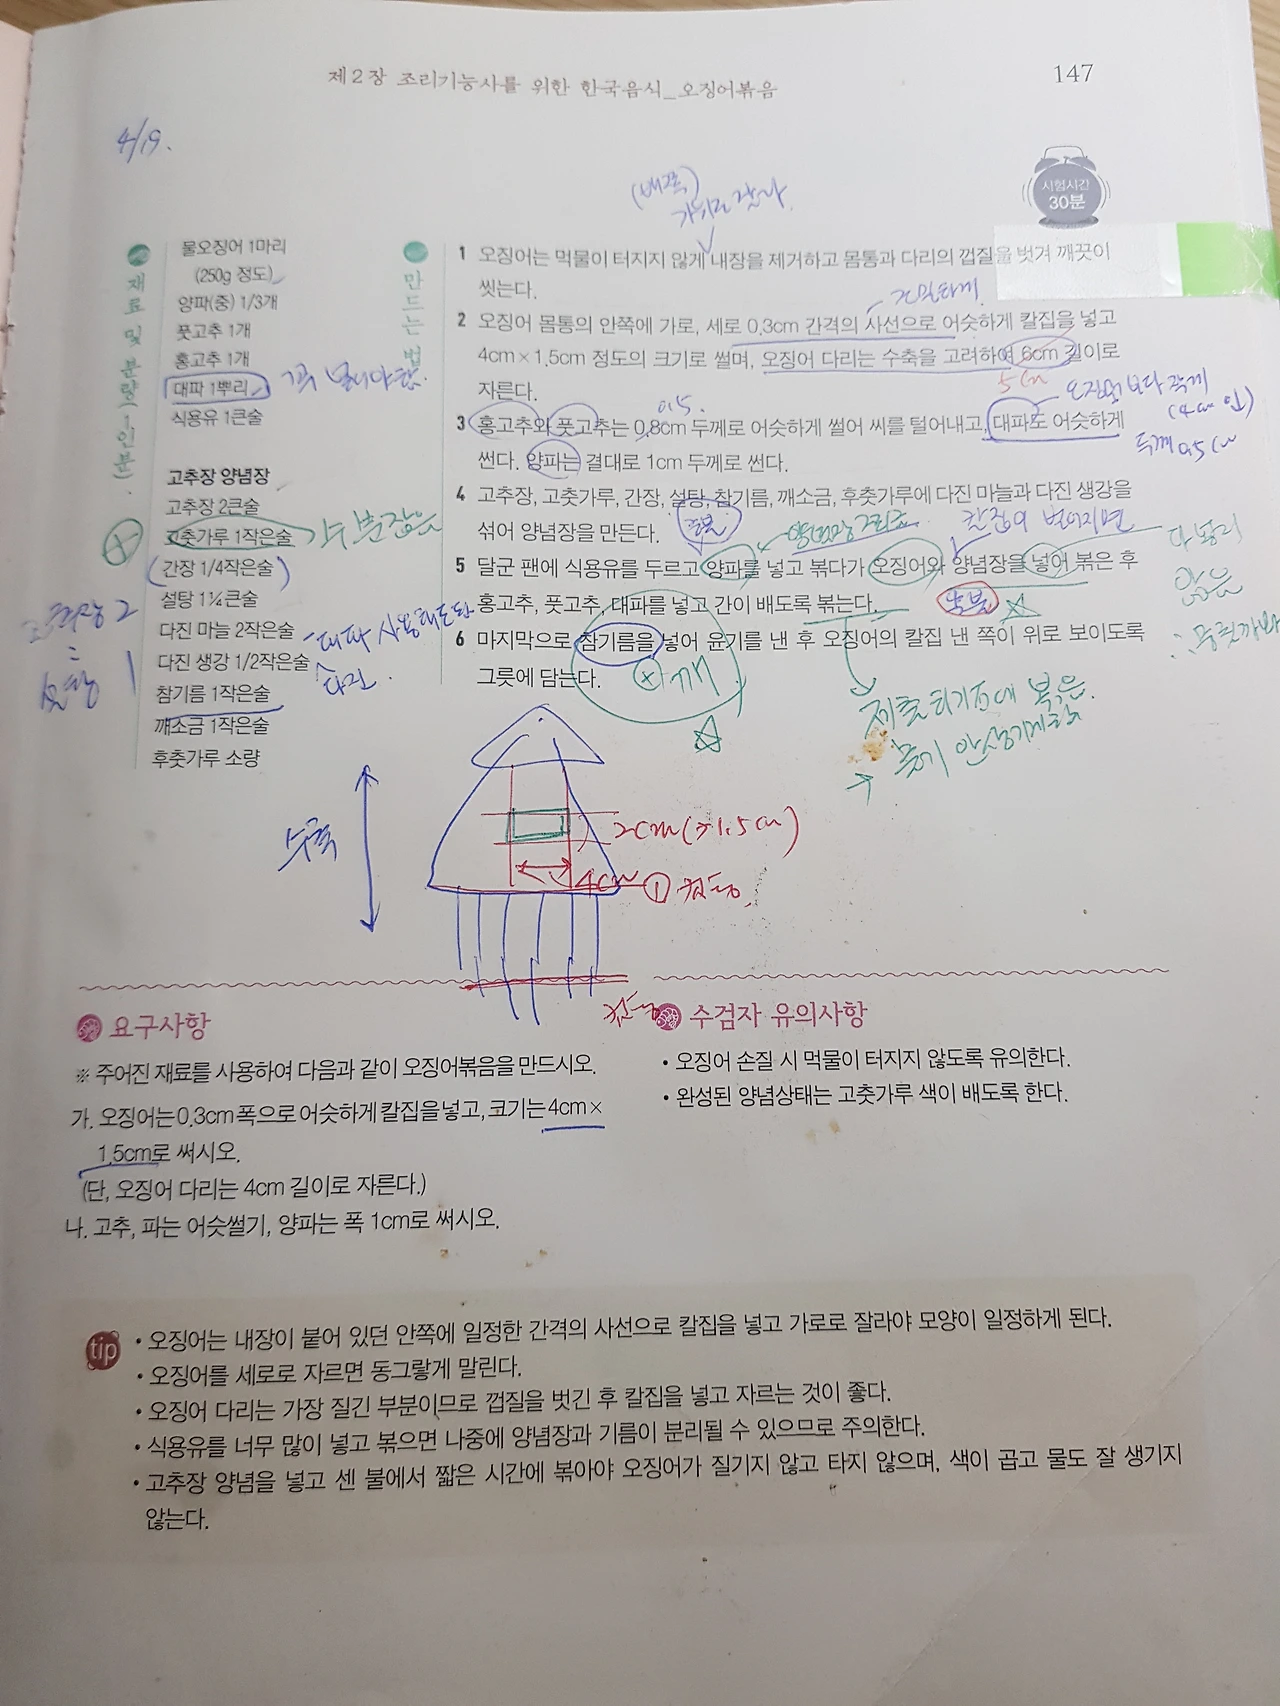 제2장 조리기능사를 위한 한국음식_오징어볶음
147
4/19.
시험시간
30분
(배쪽)
가위로 자른다.
재료 및 분량(1인분)
물오징어 1마리
(250g 정도)
양파(중) 1/3개
풋고추 1개
홍고추 1개
대파 1뿌리
식용유 1큰술
고추장 양념장
고추장 2큰술
고춧가루 1작은술
간장 1/4작은술
설탕 1¼큰술
다진 마늘 2작은술
다진 생강 1/2작은술
참기름 1작은술
깨소금 1작은술
후춧가루 소량
고추장 2
설탕 1
다진.
만드는 법
1 오징어는 먹물이 터지지 않게 내장을 제거하고 몸통과 다리의 껍질을 벗겨 깨끗이
씻는다.
촘촘하게
2 오징어 몸통의 안쪽에 가로, 세로 0.3cm 간격의 사선으로 어슷하게 칼집을 넣고
4cm×1.5cm 정도의 크기로 썰며, 오징어 다리는 수축을 고려하여 6cm 길이로
자른다.
5cm
오징어보다 작게
(4cm 인)
두께 0.5cm
0.5.
3 홍고추와 풋고추는 0.8cm 두께로 어슷하게 썰어 씨를 털어내고, 대파도 어슷하게
썬다. 양파는 결대로 1cm 두께로 썬다.
4 고추장, 고춧가루, 간장, 설탕, 참기름, 깨소금, 후춧가루에 다진 마늘과 다진 생강을
섞어 양념장을 만든다.
중불
칼집이 벌어지면
5 달군 팬에 식용유를 두르고 양파를 넣고 볶다가 오징어와 양념장을 넣어 볶은 후
홍고추, 풋고추, 대파를 넣고 간이 배도록 볶는다.
6 마지막으로 참기름을 넣어 윤기를 낸 후 오징어의 칼집 낸 쪽이 위로 보이도록
그릇에 담는다.
깨
수축
2cm(≥1.5cm)
4cm
①
요구사항
※ 주어진 재료를 사용하여 다음과 같이 오징어볶음을 만드시오.
가. 오징어는 0.3cm 폭으로 어슷하게 칼집을 넣고, 크기는 4cm×
1.5cm로 써시오.
(단, 오징어 다리는 4cm 길이로 자른다.)
나. 고추, 파는 어슷썰기, 양파는 폭 1cm로 써시오.
수검자 유의사항
• 오징어 손질 시 먹물이 터지지 않도록 유의한다.
• 완성된 양념상태는 고춧가루 색이 배도록 한다.
tip
• 오징어는 내장이 붙어 있던 안쪽에 일정한 간격의 사선으로 칼집을 넣고 가로로 잘라야 모양이 일정하게 된다.
• 오징어를 세로로 자르면 동그랗게 말린다.
• 오징어 다리는 가장 질긴 부분이므로 껍질을 벗긴 후 칼집을 넣고 자르는 것이 좋다.
• 식용유를 너무 많이 넣고 볶으면 나중에 양념장과 기름이 분리될 수 있으므로 주의한다.
• 고추장 양념을 넣고 센 불에서 짧은 시간에 볶아야 오징어가 질기지 않고 타지 않으며, 색이 곱고 물도 잘 생기지
않는다.